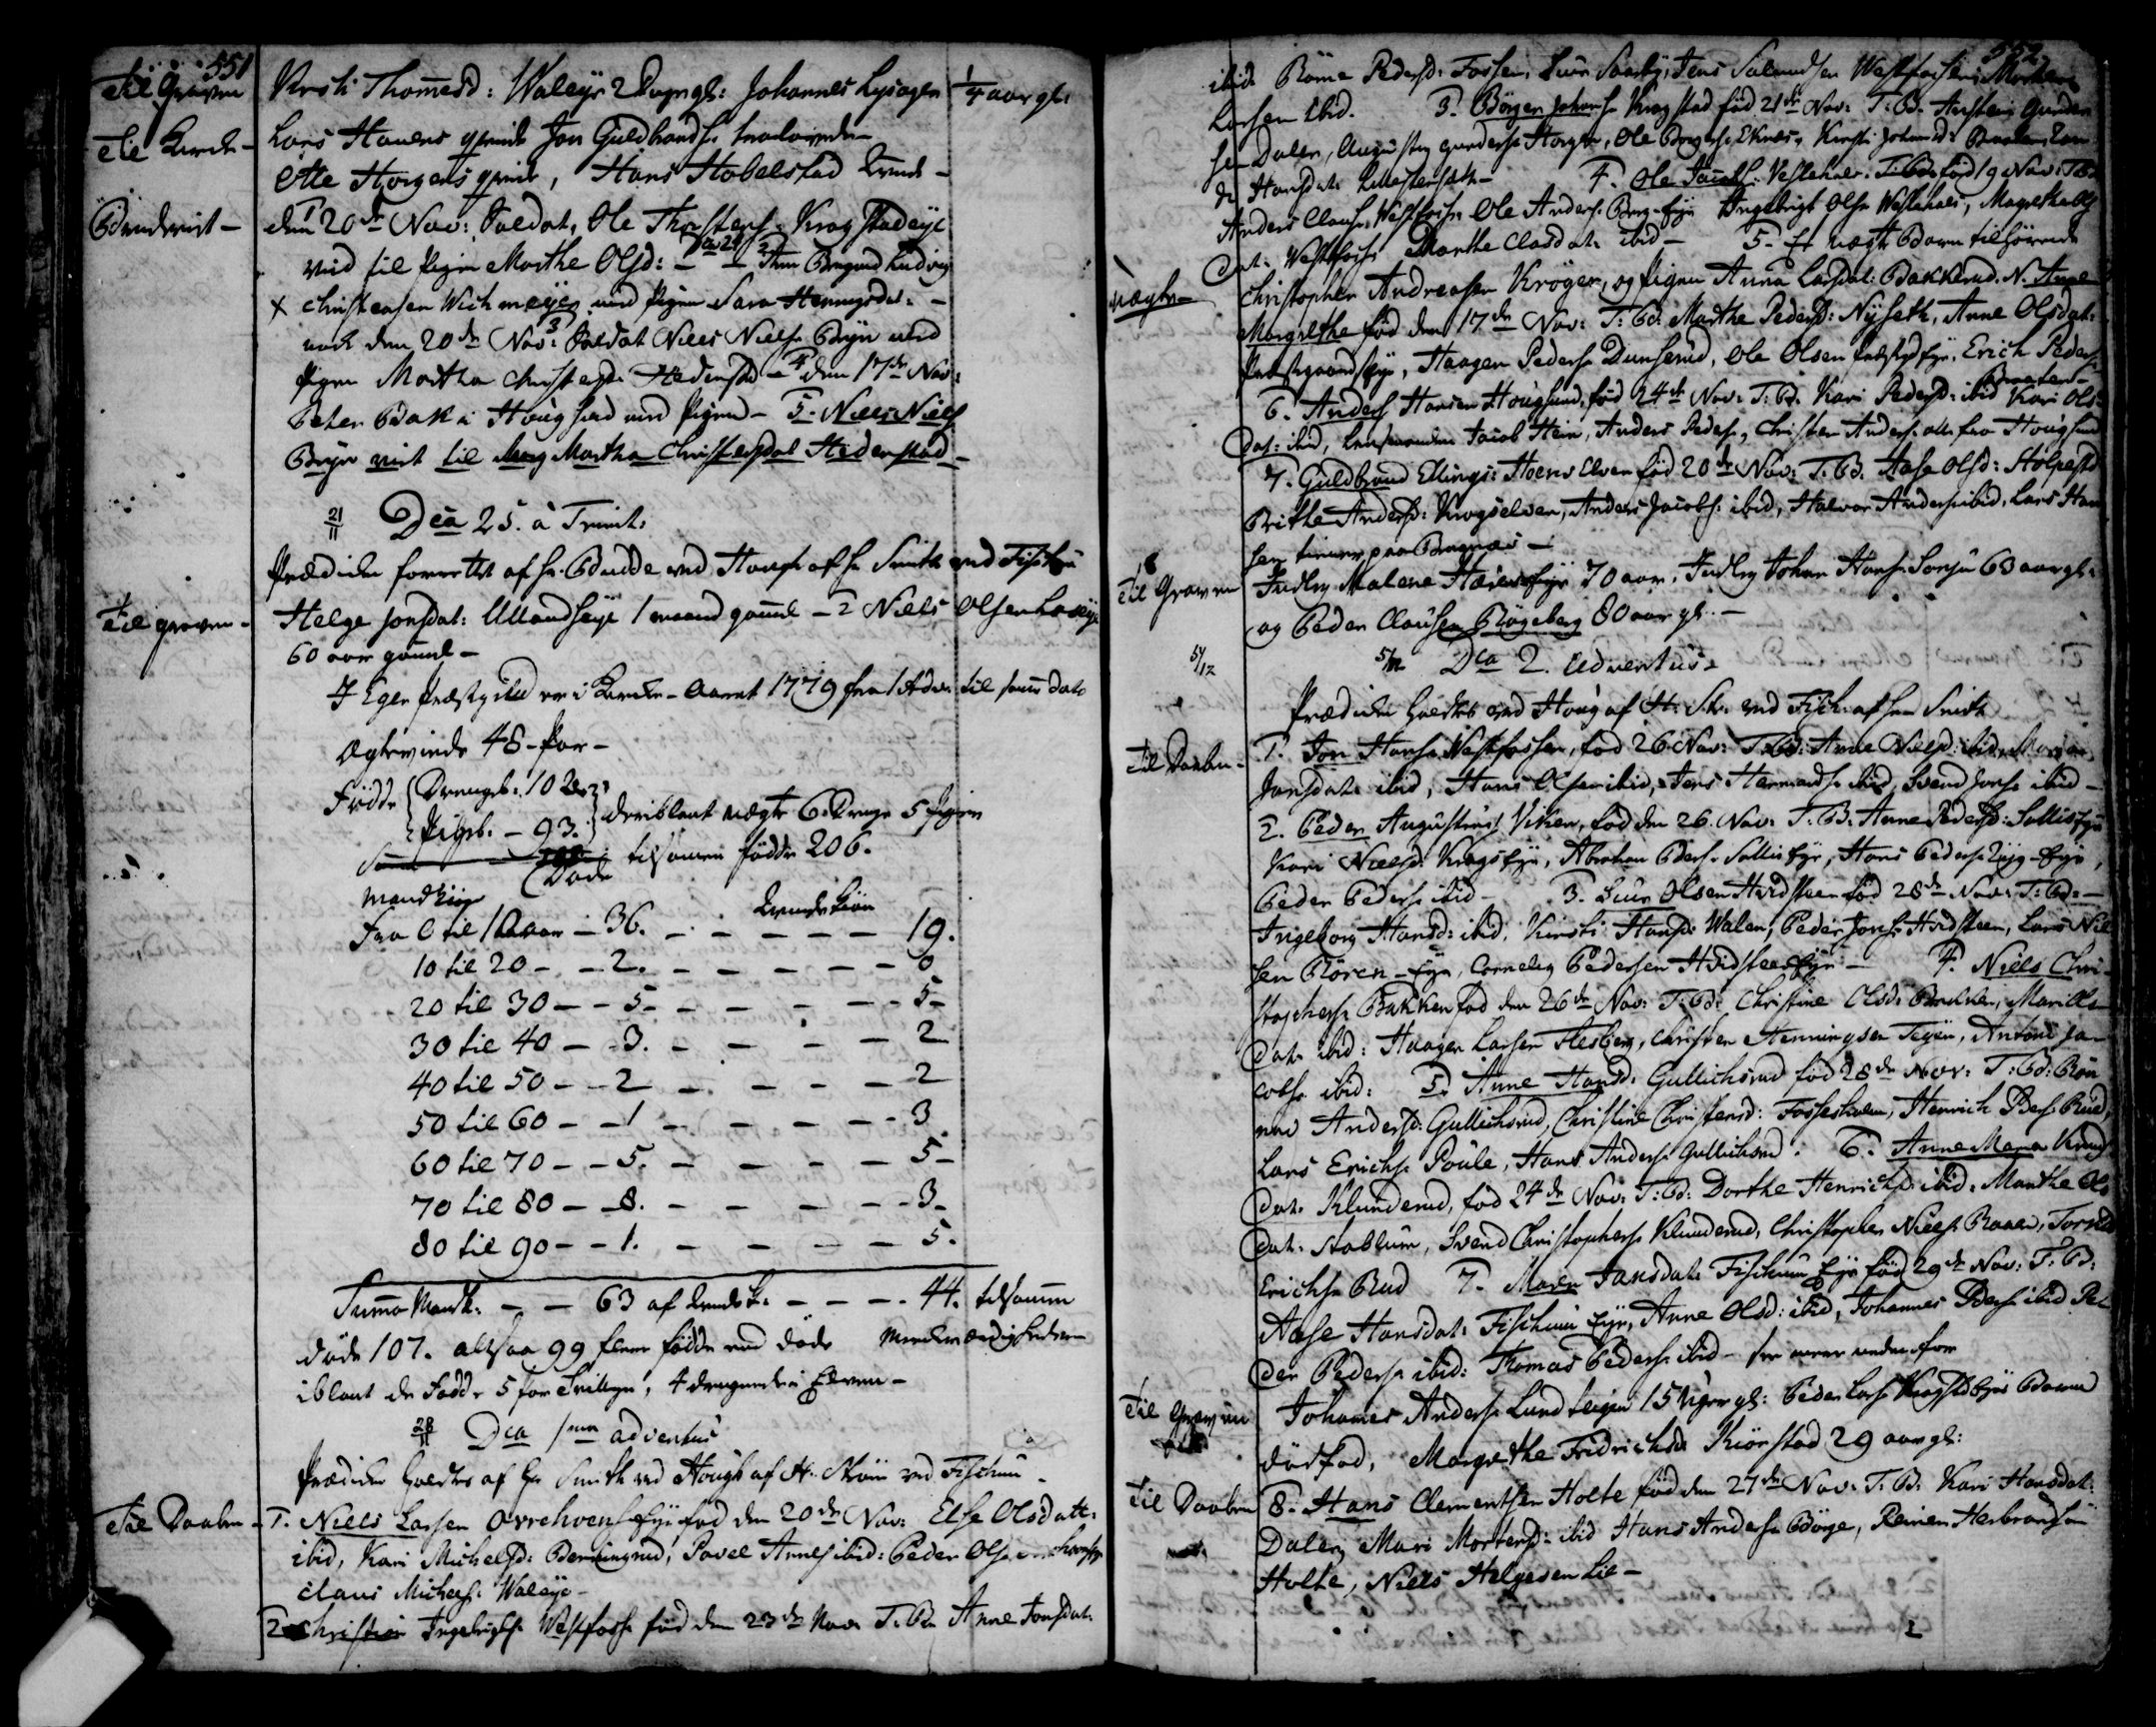 551
Til Graven
Kirsti Thomesd: Waleye 2 Dage gl: Johannes Lysager 1/4 aar gl:
Til Kirche
Lars Hauens qvinde Jon Guldbrands
Otte Horgens qvinde, Hans Hobelstad Qvinde
Brudeviet
den 20de Nov: Soldat, Ole Thorstens. Kragstadeye
vied til Pigen Marthe Olsd: - 2 Bragnes Ludvig
x Christensen Wichmeyer med Pigen Sara Henningsdat: -
nock den 20de Nov: 3 Soldat Niels Niels. Bye med
Pigen Martha Christensd: Hedenstad - 4 den 17de Nov:
Peter Bak i Hougsund med Pigen - 5. Niels Niels.
Bye viet til Martha Christensdat Hedenstad -
21/11 Dca 25. à Trinit:
Prædiken forrettet af Hr. Budde ved Houg af Hr Smith ved Fischum
Til graven
Helge Jonsdat: Ullandseye 1 maaned gamel - 2 Niels Olsen
60 aar gamel -
I Eger Præstegield er i Kirke-Aaret 1779 fra 1 Adv: til samme Dato
Ægteviede 48 Par -
Fødde Drengeb. 102
Pigeb. - 93. deriblant uægte 6 Drenge 5 Piger
tilsamen fødde 206.
Døde
Mandkiøn Qvindekiøn
Fra 0 til 10 aar - 36. - - - - - 19.
10 til 20 - - 2. - - - - - 0
20 til 30 - - 5 - - - - - 5 -
30 til 40 - - 3. - - - - - 2
40 til 50 - - 2 - - - - - 2
50 til 60 - - 1 - - - - - 3
60 til 70 - - 5. - - - - - 5 -
70 til 80 - - 8. - - - - - 3 -
80 til 90 - - 1. - - - - - 5.
Summa Mandk: - - 63 af Qvindek: - - - 44. tilsamen
døde 107. altsaa 99 flere fødde end døde Merckværdighederne
iblant de Fødde 5 par Tvillinger, 4 i Elven -
28/11 Dca 1ma adventus
Prædiken holdtes af Hr Smith ved Houg af Hr. Strøm ved Fischum
Til Daaben
1. Niels Larsen Overhoens Eye fød den 20de Nov: Else Olsdatt:
ibid, Kari Michelsd: Berningrud, Povel Arnes. ibid: Peder Ols.
Claus Michels. Waleye -
2 Christian Ingebrigts. Westfossen fød den 23de Nov: T: B: Anne Jonsdat:
552
ibid: Børne Pedersd: Fossen, Siur Saasby, Jens Salmundsen Westfossen, Morten
Larsen ibid. 3. Børger Johans. Kragstad fød 21de Nov: T: B: Anstein Gunder
sen Dalen, Augustin Gunders. Horgen, Ole Børges. Eknes, Kirsti Johansd: Braaten
4. Ole Jacobs. Vestehoel. T: B: fød 19 Nov:
Anders Claus. Westfossen Ole Anders. Berg-Eye Engebrigt Ols. Westehoel, Magrethe Ols
dat: Westfossen Marthe Clasdat: ibid - 5. Et uægte Barn tilhørende
uægte
Christopher Andreasen Krøger, og Pigen Anna Larsdat: Bakkerud. N. Anne
Margrethe fød den 17de Nov: T: B: Marthe Pedersd: Nyseth, Anne Olsdat:
Haagen Peders. Dunserud, Ole Olsen Eye, Erich Peders.
Braaten
6. Anders Hansen Hougsund, fød 24de Nov: T: B: Kari Pedersd: ibid Kari Ols
dat: ibid, Lensmanden Jacob Stein, Anders Peders., Christen Anders. alle fra Hougsund
7. Guldbrand Ellings: Hoens Elven fød 20de Nov: T: B: Aase Olsd: Stolpestad
Brithe Andersd: Kragselven, Anders Jacobs. ibid, Halvor Anders. ibid, Lars Han
sen tienner paa Bragnæs -
Til Graven
Indlg Malene Eye 70 aar, Indlg Johan Hans. Sonju 63 aar gl:
og Peder Clausen Røgeberg 80 aar gl: -
5/12 5/12 Dca 2. Adventus.
Prædiken holdtes ved Houg af H: Str: ved Fisch: af Herr Smith
Til Daaben
1. Jon Hans. Westfossen, fød 26 Nov: T: B: Anne Nielsd: ibid, Maren
Jansdat: ibid, Hans Olsen ibid, Jens Hermands. ibid, Svend Jons. ibid -
2. Peder Augustinus. Viken, fød den 26. Nov: T: B: Anne Pedersd: Sollis Eye
Kari Nielsd: Krags Eye, Abraham Peders. Sollis Eye, Hans Peders. Lyg-Eye,
Peder Peders. ibid - 3. Siur Olsen Hvidsteen fød 28de Nov: T: B: -
Ingeborg Hansd: ibid, Kirsti Hansd: Walen, Peder Jons. Hvidsteen, Lars Niel
sen Røren-Eye, Cornelius Pedersen Hvidsteen Eye - 4. Niels Chri
stophers. Bakken fød den 26de Nov: T: B: Christine Olsd: Bakken, Marithe
dat: ibid: Haagen Larsen Flesberg, Christen Henningsen Teyen, Antoni Ja
cobs. ibid: 5. Anne Hansd: Gullichsrud fød 28de Nov: T: B: Røn
nau Andersd: Gullichsrud, Christine Christensd: Fossesholm, Henrich Peders. Rued,
Lars Erichs. Poule, Hans Anders. Gullichsrud. 6. Anne Maria Knuds
dat: Klunderud, fød 24de Nov: T: B: Dorthe Henrichsd: ibid. Marthe Ols
dat: Stablum, Svend Christophers. Klunderud, Christopher Niels. Raaen,
Erichs. Rud 7. Maren Jansdat: Fischum Eye fød 29de Nov: T: B:
Aase Hansdat: Fischum Eye, Anne Olsd: ibid, Johannes Peders. ibid Pe
der Peders. ibid: Thomas Peders. ibid - see mere nedenfor
Til Graven
Johannes Anders. Lundteigen 15 Uger gl: Peder Lars. Kragstad Eyes Barn
dødfød, Margrethe Fridrichsd: Kiørstad 29 aar gl:
Til Daaben
8. Hans Clementsen Holte fød den 27de Nov: T: B: Kari Hansdat:
Dalen, Mari Mortensd: ibid Hans Anders. Børge, Reinert Herbrands.
Holte, Niels Helgesen Lie -